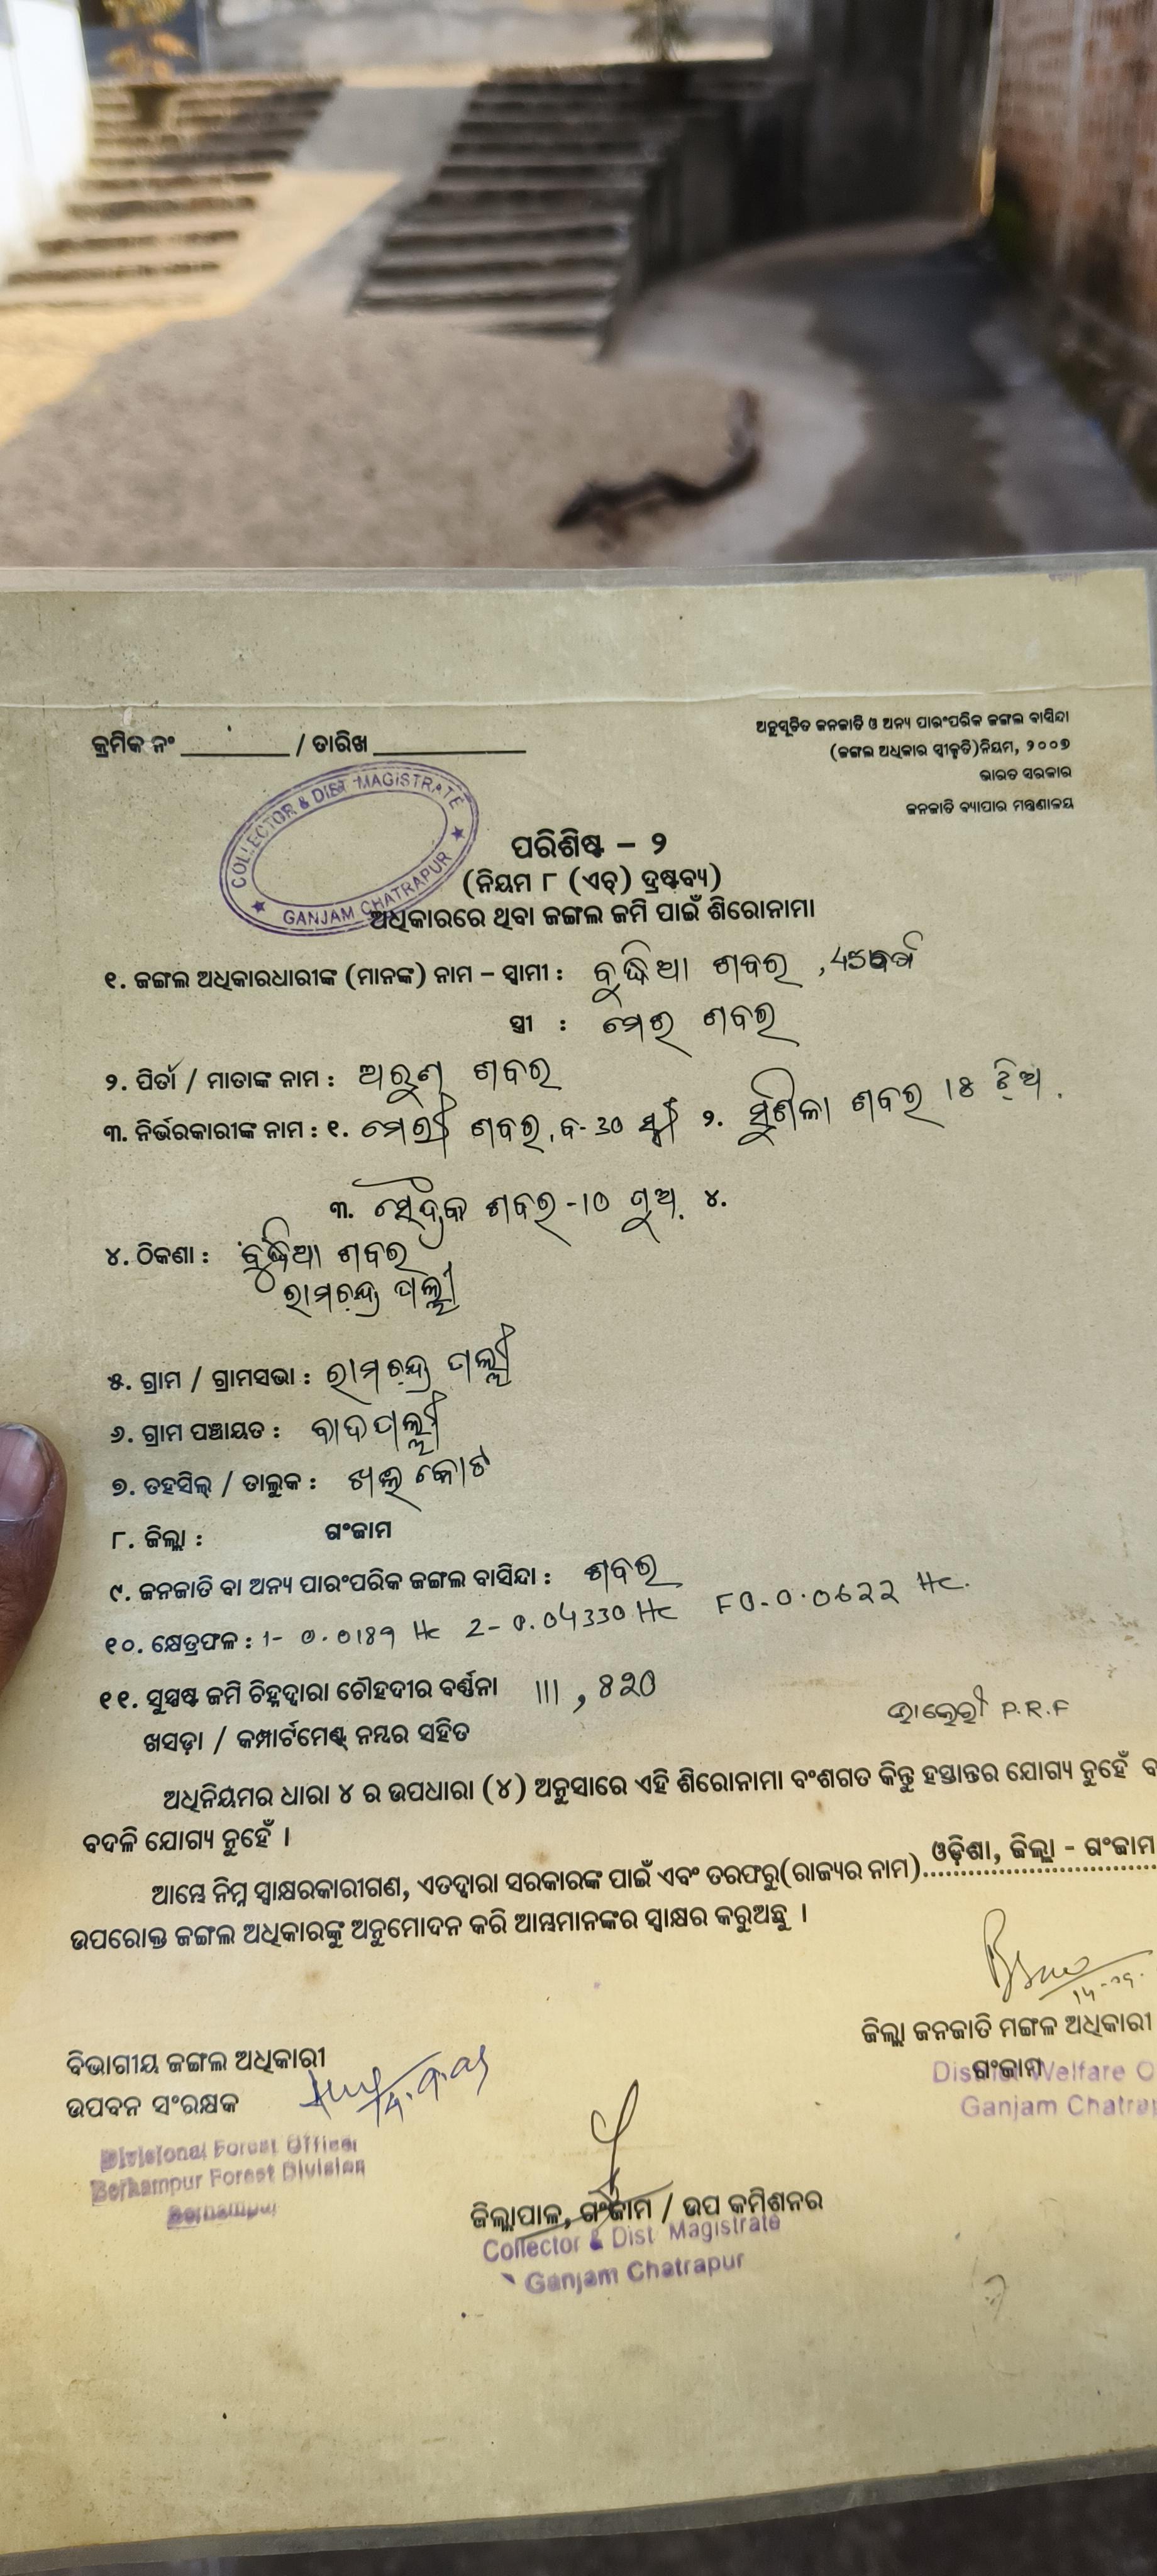 କ୍ରମିକ ନଂ ________ / ତାରିଖ ____________
ଅନୁସୂଚିତ ଜନଜାତି ଓ ଅନ୍ୟ ପାରଂପରିକ ଜଙ୍ଗଲ ବାସିନ୍ଦା
(ଜଙ୍ଗଲ ଅଧିକାର ସ୍ୱୀକୃତି)ନିୟମ, ୨୦୦୭
ଭାରତ ସରକାର
ଜନଜାତି ବ୍ୟାପାର ମନ୍ତ୍ରଣାଳୟ
COLLECTOR & DIST MAGISTRATE
GANJAM CHATRAPUR
ପରିଶିଷ୍ଟ – ୨
(ନିୟମ ୮ (ଏଚ୍) ଦ୍ରଷ୍ଟବ୍ୟ)
ଅଧିକାରରେ ଥିବା ଜଙ୍ଗଲ ଜମି ପାଇଁ ଶିରୋନାମା
୧. ଜଙ୍ଗଲ ଅଧିକାରଧାରୀଙ୍କ (ମାନଙ୍କ) ନାମ – ସ୍ୱାମୀ : ବୁଦ୍ଧିଆ ଶବର
ସ୍ତ୍ରୀ : ମେରୀ ଶବର
୨. ପିତା / ମାତାଙ୍କ ନାମ : ଅରୁଣ ଶବର
୩. ନିର୍ଭରକାରୀଙ୍କ ନାମ : ୧. ମେରୀ ଶବର, ବ-30 ସ୍ତ୍ରୀ ୨. ସୁଶିଳା ଶବର ଝିଅ.
୩. ଶବର -10 ପୁଅ. ୪.
୪. ଠିକଣା : ବୁଦ୍ଧିଆ ଶବର
ରାମଚନ୍ଦ୍ର ପଲ୍ଲୀ
୫. ଗ୍ରାମ / ଗ୍ରାମସଭା : ରାମଚନ୍ଦ୍ର ପଲ୍ଲୀ
୬. ଗ୍ରାମ ପଞ୍ଚାୟତ : ବାଦପଲ୍ଲୀ
୭. ତହସିଲ୍ / ତାଲୁକ : ଖଲ୍ଲିକୋଟ
୮. ଜିଲ୍ଲା : ଗଂଜାମ
୯. ଜନଜାତି ବା ଅନ୍ୟ ପାରଂପରିକ ଜଙ୍ଗଲ ବାସିନ୍ଦା : ଶବର
୧୦. କ୍ଷେତ୍ରଫଳ : 1- 0.0189 Hc 2- 0.04330 Hc 0.0622 Hc.
୧୧. ସୁସ୍ପଷ୍ଟ ଜମି ଚିହ୍ନଦ୍ୱାରା ଚୌହଦୀର ବର୍ଣ୍ଣନା 111, ୫୨0
ଖସଡ଼ା / କମ୍ପାର୍ଟମେଣ୍ଟ୍ ନମ୍ବର ସହିତ P.R.F
ଅଧିନିୟମର ଧାରା ୪ ର ଉପଧାରା (୪) ଅନୁସାରେ ଏହି ଶିରୋନାମା ବଂଶଗତ କିନ୍ତୁ ହସ୍ତାନ୍ତର ଯୋଗ୍ୟ ନୁହେଁ
ବଦଳି ଯୋଗ୍ୟ ନୁହେଁ ।
ଆମ୍ଭେ ନିମ୍ନ ସ୍ୱାକ୍ଷରକାରୀଗଣ, ଏତଦ୍ୱାରା ସରକାରଙ୍କ ପାଇଁ ଏବଂ ତରଫରୁ(ରାଜ୍ୟର ନାମ) ଓଡ଼ିଶା, ଜିଲ୍ଲା - ଗଂଜାମ
ଉପରୋକ୍ତ ଜଙ୍ଗଲ ଅଧିକାରଙ୍କୁ ଅନୁମୋଦନ କରି ଆମ୍ଭମାନଙ୍କର ସ୍ୱାକ୍ଷର କରୁଅଛୁ ।
ଜିଲ୍ଲା ଜନଜାତି ମଙ୍ଗଳ ଅଧିକାରୀ
ଗଂଜାମ
District Welfare O
Ganjam Chatrap
ବିଭାଗୀୟ ଜଙ୍ଗଲ ଅଧିକାରୀ
ଉପବନ ସଂରକ୍ଷକ
Divisional Forest Officer
Berhampur Forest Division
Berhampur
ଜିଲ୍ଲାପାଳ, ଗଂଜାମ / ଉପ କମିଶନର
Collector & Dist Magistrate
Ganjam Chatrapur